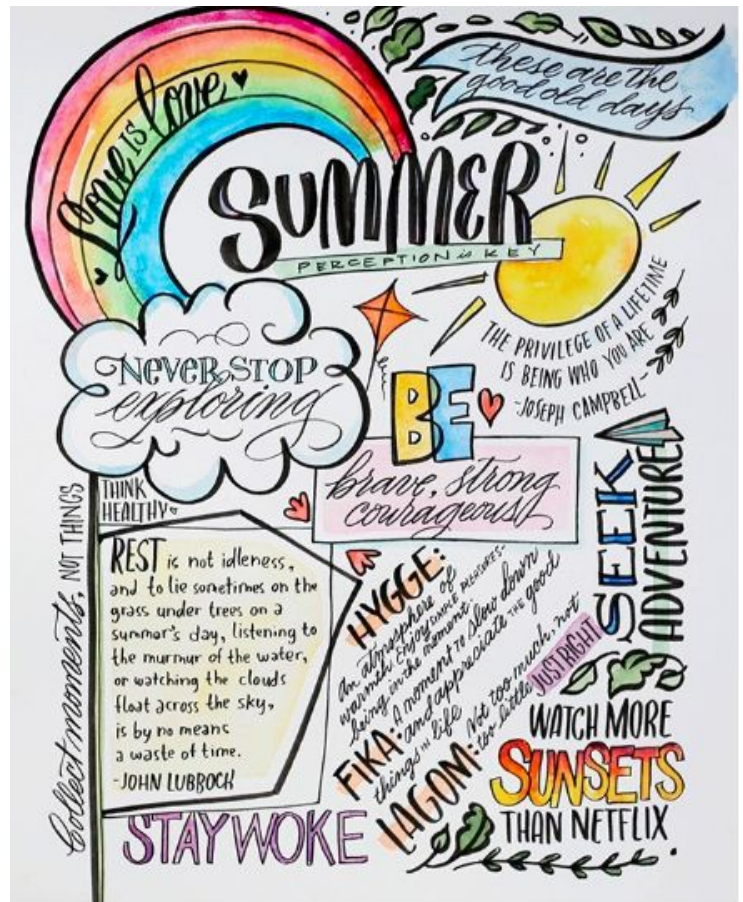 these are the
good old days
Love is love
SUMMER
PERCEPTION is KEY
THE PRIVILEGE OF A LIFETIME
IS BEING WHO YOU ARE
-JOSEPH CAMPBELL-
NEVER STOP
exploring
BE
brave, strong
courageous
THINK
HEALTHY
Collect moments, NOT THINGS
REST is not idleness,
and to lie sometimes on the
grass under trees on a
summer's day, listening to
the murmur of the water,
or watching the clouds
float across the sky,
is by no means
a waste of time.
-JOHN LUBBOCK
HYGGE:
An atmosphere of
warmth. Enjoy SIMPLE PLEASURES-
being in the moment.
FIKA: A moment to slow down
and appreciate THE good
things IN life
LAGOM: Not too much, not
too little JUST RIGHT
SEEK
ADVENTURE
WATCH MORE
SUNSETS
THAN NETFLIX
STAY WOKE